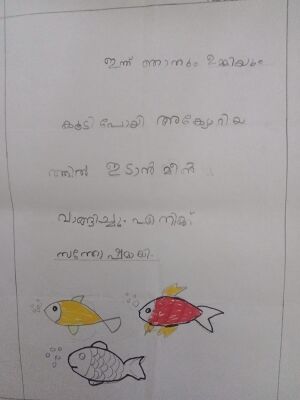 ഇന്ന് ഞാനും ഉമ്മിയും
കൂടി പോയി അക്വേറിയ
ത്തിൽ ഇടാൻ മീൻ
വാങ്ങിച്ചു. എനിക്ക്
സന്തോഷമായി.